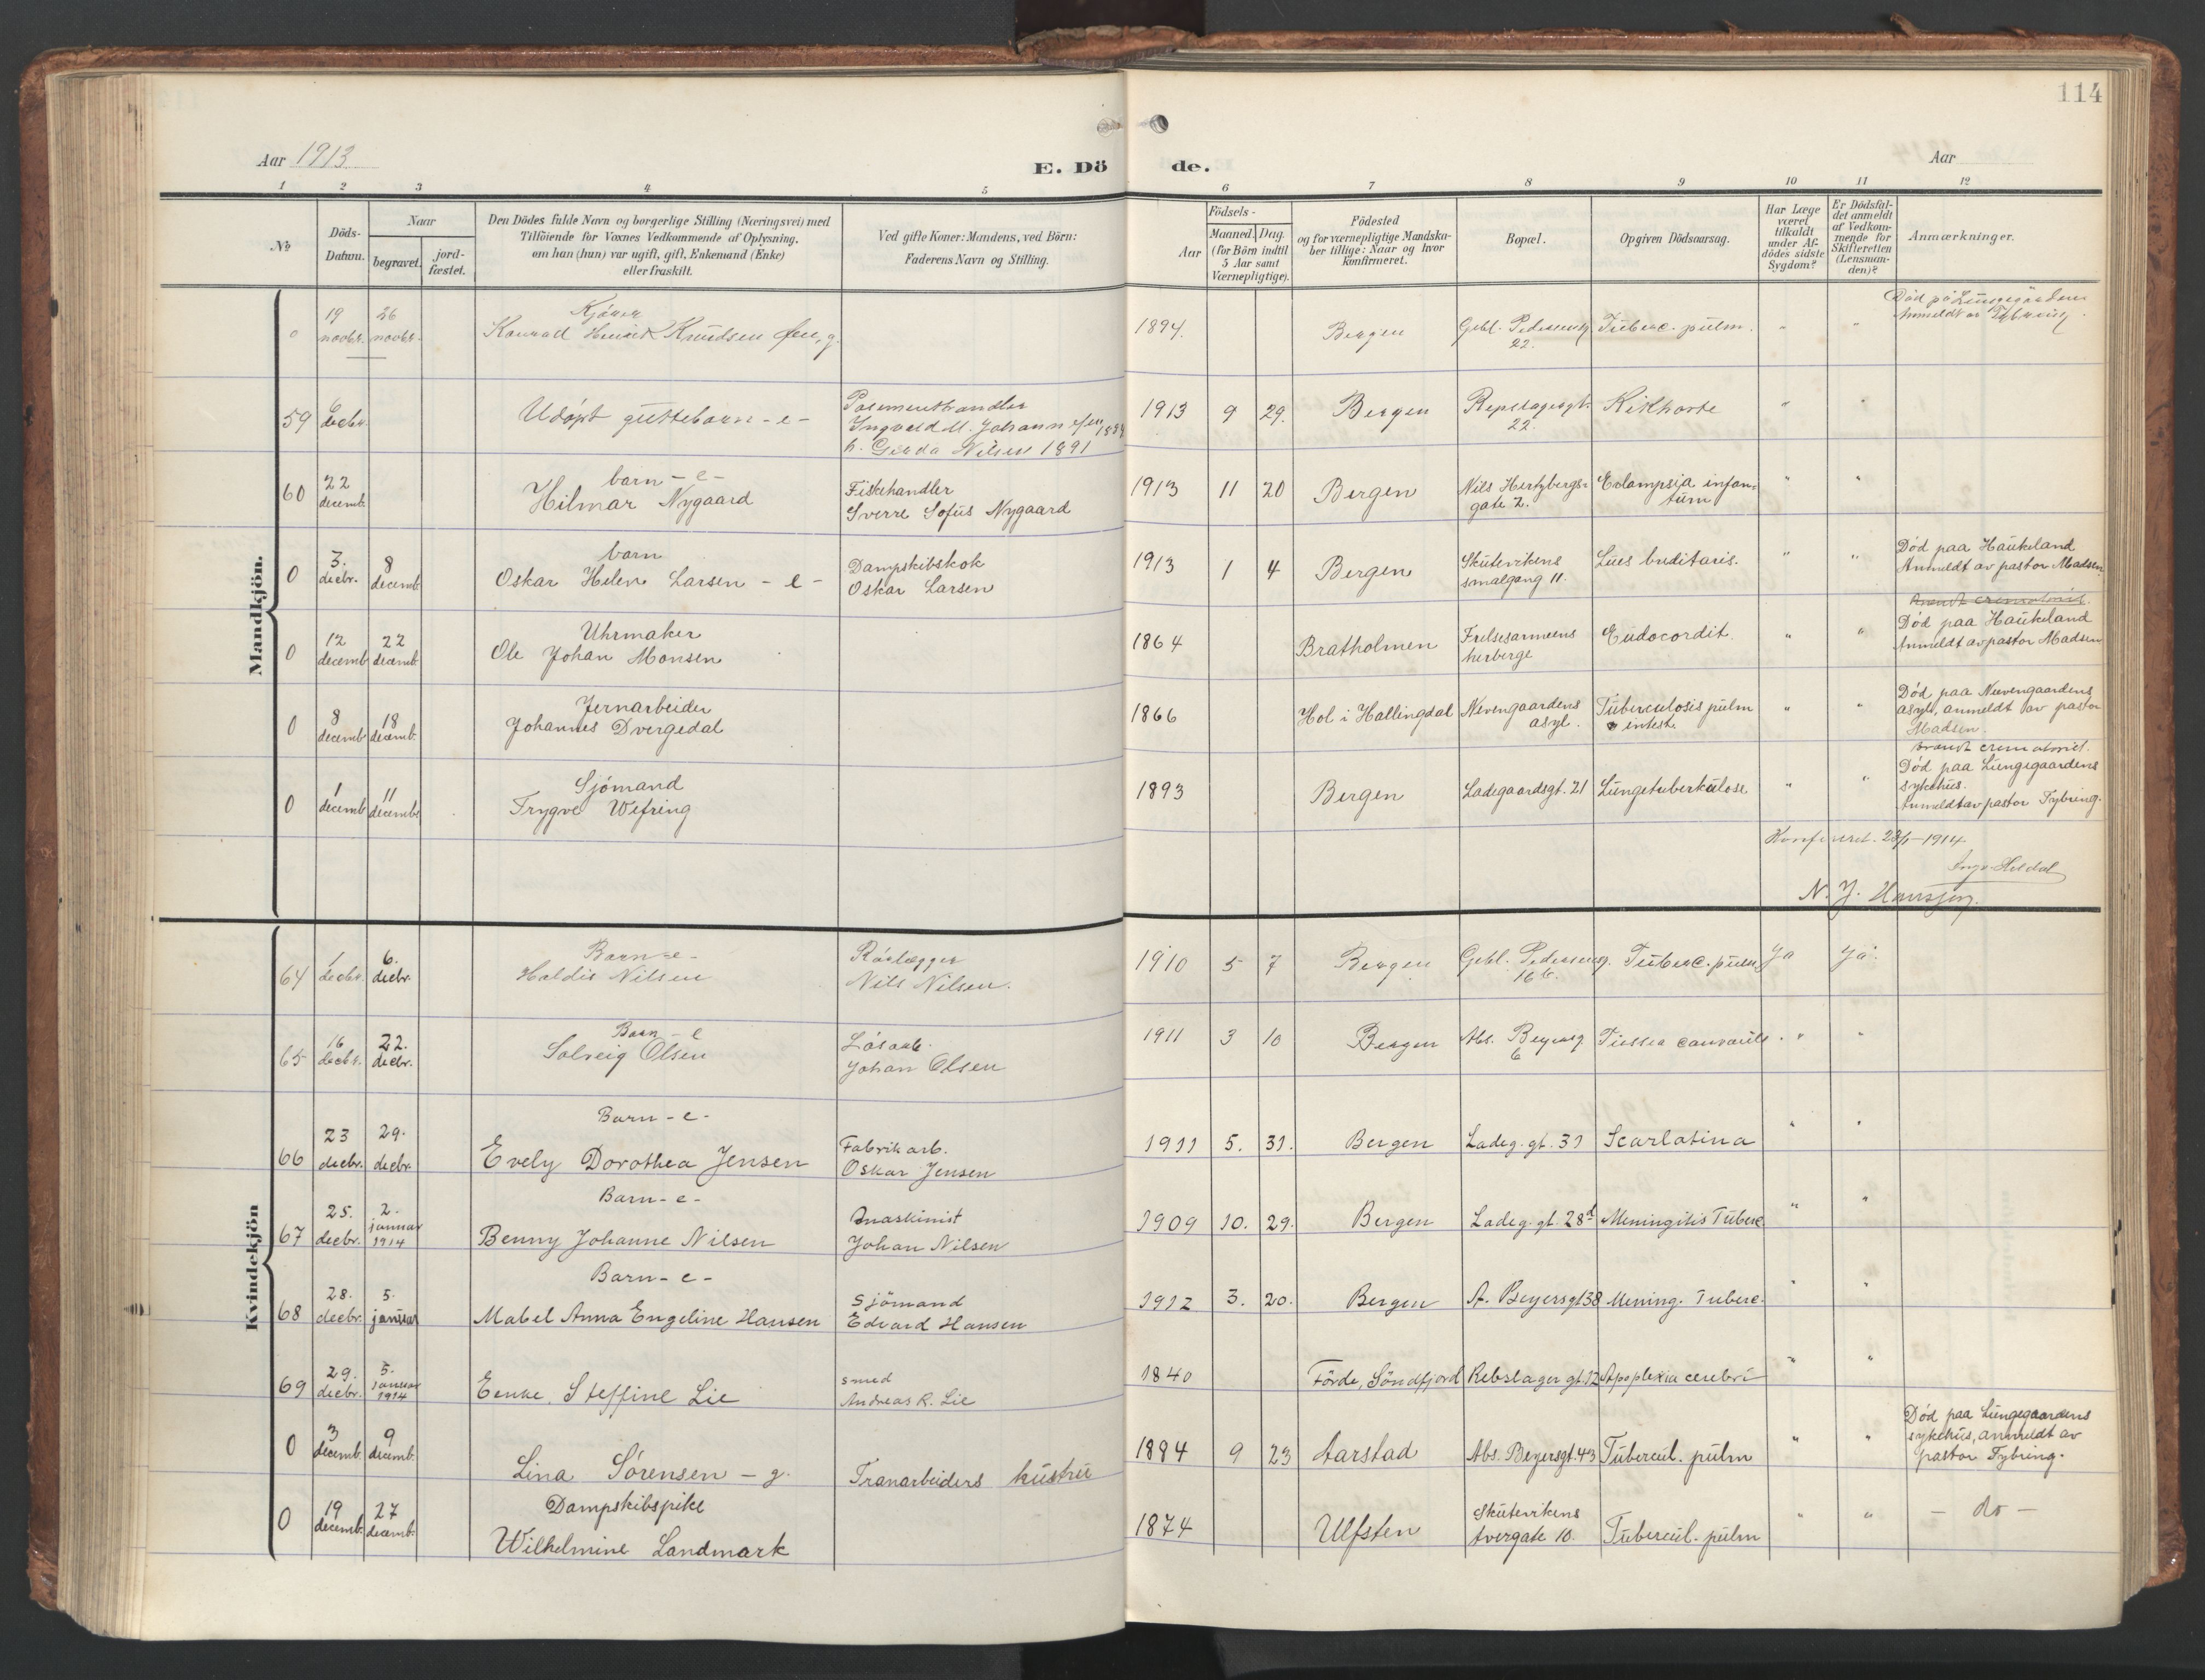 114
Aar 1913
E. Dö de.
Aar
1 2 3 4 5 6 7 8 9 10 11 12
No
Döds-
Datum.
Naar
begravet.
jord-
fæstet.
Den Dödes fulde Navn og borgerlige Stilling (Næringsvei) med
Tilföiende for Voxnes Vedkommende af Oplysning,
om han (hun) var ugift, gift, Enkemand (Enke)
eller fraskilt.
Ved gifte Koner: Mandens, ved Börn:
Faderens Navn og Stilling.
Födsels-
Aar
Maaned. Dag.
(for Börn indtil
5 Aar samt
Værnepligtige).
Födested
og for værnepligtige Mandska-
ber tillige: Naar og hvor
konfirmeret.
Bopæl.
Opgiven Dödsaarsag.
Har Læge
været
tilkaldt
under Af-
dödes sidste
Sygdom?
Er Dödsfal-
det anmeldt
af Vedkom-
mende for
Skifteretten
(Lensman-
den)?
Anmærkninger.
Mandkjön.
0 19 novbr. 26 novbr. Kjører
Konrad Henrik Knudsen g. 1894. Bergen Gebl. Pedersensg. 22. Tuberc. pulm. " "
Anmeldt av Tybring
59 6 decbr. Udøpt guttebarn - e - Posementhandler
Ingvald M. Johannesen
h. Gerda Nilsen 1891 1913 9 29. Bergen Repslagergt. 22. Kikhoste " "
60 22 decemb. barn - e -
Hilmar Nygaard Fiskehandler
Sverre Sofus Nygaard 1913 11 20 Bergen Nils Hertzbergs-
gate 2. Eclampsia infan-
tum " "
0 3. decbr. 8 decemb. barn
Oskar Helen Larsen - e - Dampskibskok
Oskar Larsen 1913 1 4 Bergen Skutevikens
smalgang 11. Lues " "
Død paa Haukeland
Anmeldt av pastor Madsen.
0 12 decemb. 22 decemb. Uhrmaker
Ole Johan Monsen 1864 Bratholmen Frelsesarmeens
herberge Endocordit. " "
Død paa Haukeland
Anmeldt av pastor Madsen
0 8 decemb. 18 decemb. Jernarbeider
Johannes Dvergedal 1866 Hol i Hallingdal Nevengaardens
asyl. Tuberculosis pulm
intest. " "
Død paa Nevengaardens
asyl, anmeldt av pastor
Madsen.
0 1 decemb. 11 decembr. Sjømand
Trygve Wefring 1893 Bergen Ladegaardsgt. 21 Lungetuberkulose " "
Død paa Lungegaardens
sykehus.
Anmeldt av pastor Tybring.
Konfereret. 23/1-1914.
N. J. Hanssen.
Kvindekjön
64 1 decbr. 6. decbr. Barn - e -
Haldis Nilsen Rørlægger
Nils Nilsen. 1910 5 7 Bergen Gebl. Pedersensg.
16 b. Tuberc. pulm. Ja Ja.
65 16 decbr. 22. decbr. Barn - e
Solveig Olsen Løsarb.
Johan Olsen 1911 3 10 Bergen Abs. Beyersg.
6 " "
66 23 decbr. 29. decbr. Barn - e -
Evely Dorothea Jensen Fabrikarb.
Oskar Jensen 1911 5. 31. Bergen Ladeg. gt. 31 Scarlatina " "
67 25. decbr. 2. januar 1914 Barn - e -
Benny Johanne Nilsen Maskinist
Johan Nilsen 1909 10. 29. Bergen Ladeg. gt. 28 d Meningitis Tuberc. " "
68 28. decbr. 5. januar Barn - e -
Mabel Anna Engeline Hansen Sjömand
Edvard Hansen 1912 3. 20. Bergen A. Beyersgt 38 Mening. Tuberc. " "
69 29. decbr. 5. januar 1914 Enke. Steffine Lie smed
Andreas R. Lie 1840 Förde, Söndfjord Rebslager gt. 12 Apoplexia cerebri " "
0 3 decemb. 9 decemb.
Lina Sørensen - g. Tranarbeiders hustru 1884 9 23 Aarstad Abs. Beyersgt. 43 Tubercul. pulm " "
Død paa Lungegaardens
sykehus, anmeldt av
pastor Tybring.
0 19 decemb. 27 decemb. Dampskibspike
Wilhelmine Landmark 1874 Ulfsten Skutevikens
tvergate 10. Tubercul. pulm " " - do -